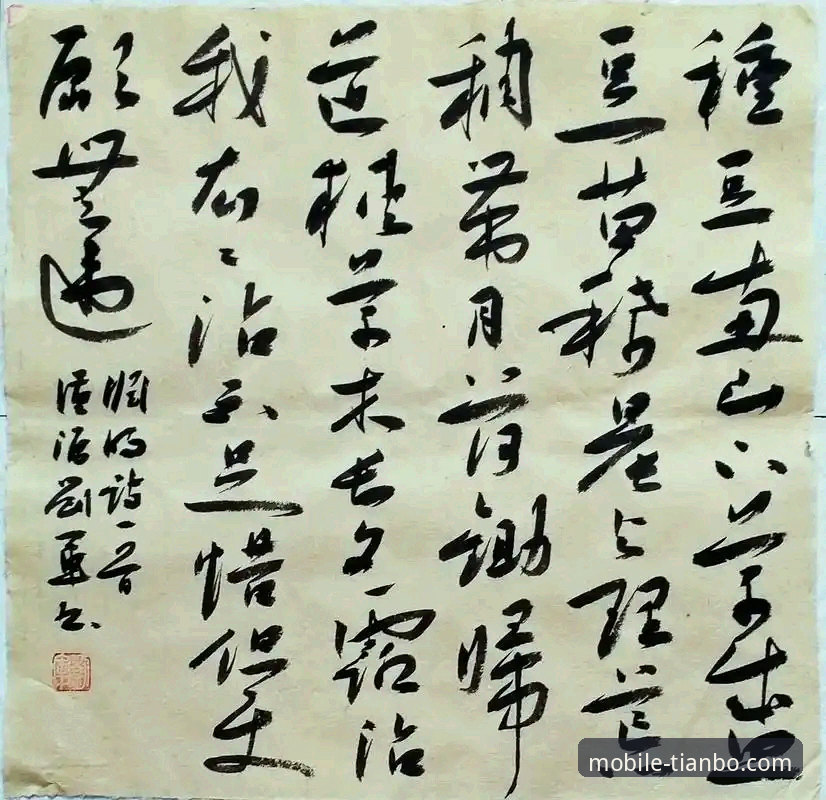 種豆南山下草盛
豆苗稀晨興理荒
穢帶月荷鋤歸
道狹草木長夕露沾
我衣〻沾不足惜但使
願無違
淵明詩一首
劉軍书
mobile-tianbo.com